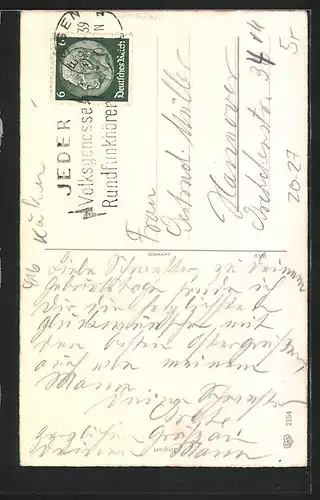 6 Deutsches Reich 6
39
JEDER
Volksgenosse
Rundfunkhörer
Frau
Müller
Hannover
20-27
Küken
GERMANY
Liebe Schwester zu Deinem
Geburtstage sende ich
Dir die herzlichsten
Glückwünsche mit
den besten Ostergrüßen
auch von meinem
Mann
Deine Schwester
Grete
Herzlichen Gruß an
Deinen Mann.
2154